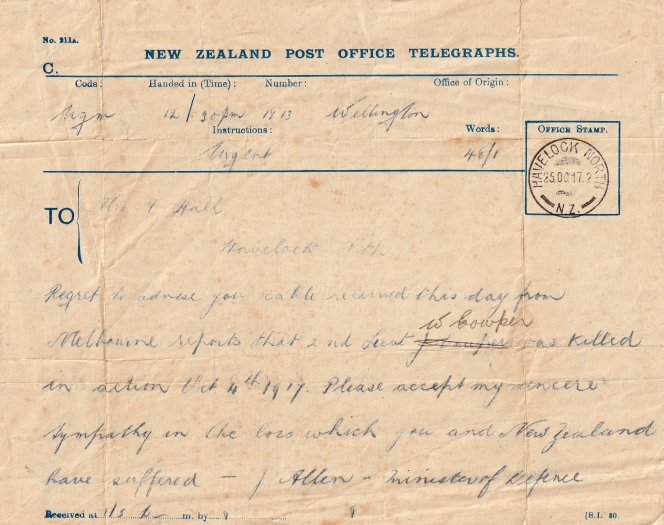 No. 211A.
NEW ZEALAND POST OFFICE TELEGRAPHS.
C.
Code: Handed in (Time): Number: Office of Origin:
12/20pm 1813 Wellington
Instructions: Words:
Urgent 48/1
OFFICE STAMP.
HAVELOCK NORTH
25.OC.17.2
N.Z.
TO
Hall
Havelock Nth
Regret to advise you cable received this day from
Melbourne reports that 2nd Lieut W Cowper was killed
in action Oct 4th 1917. Please accept my sincere
sympathy in the loss which you and New Zealand
have suffered – J Allen – Minister of Defence
Received at m. by
[S.L. 30